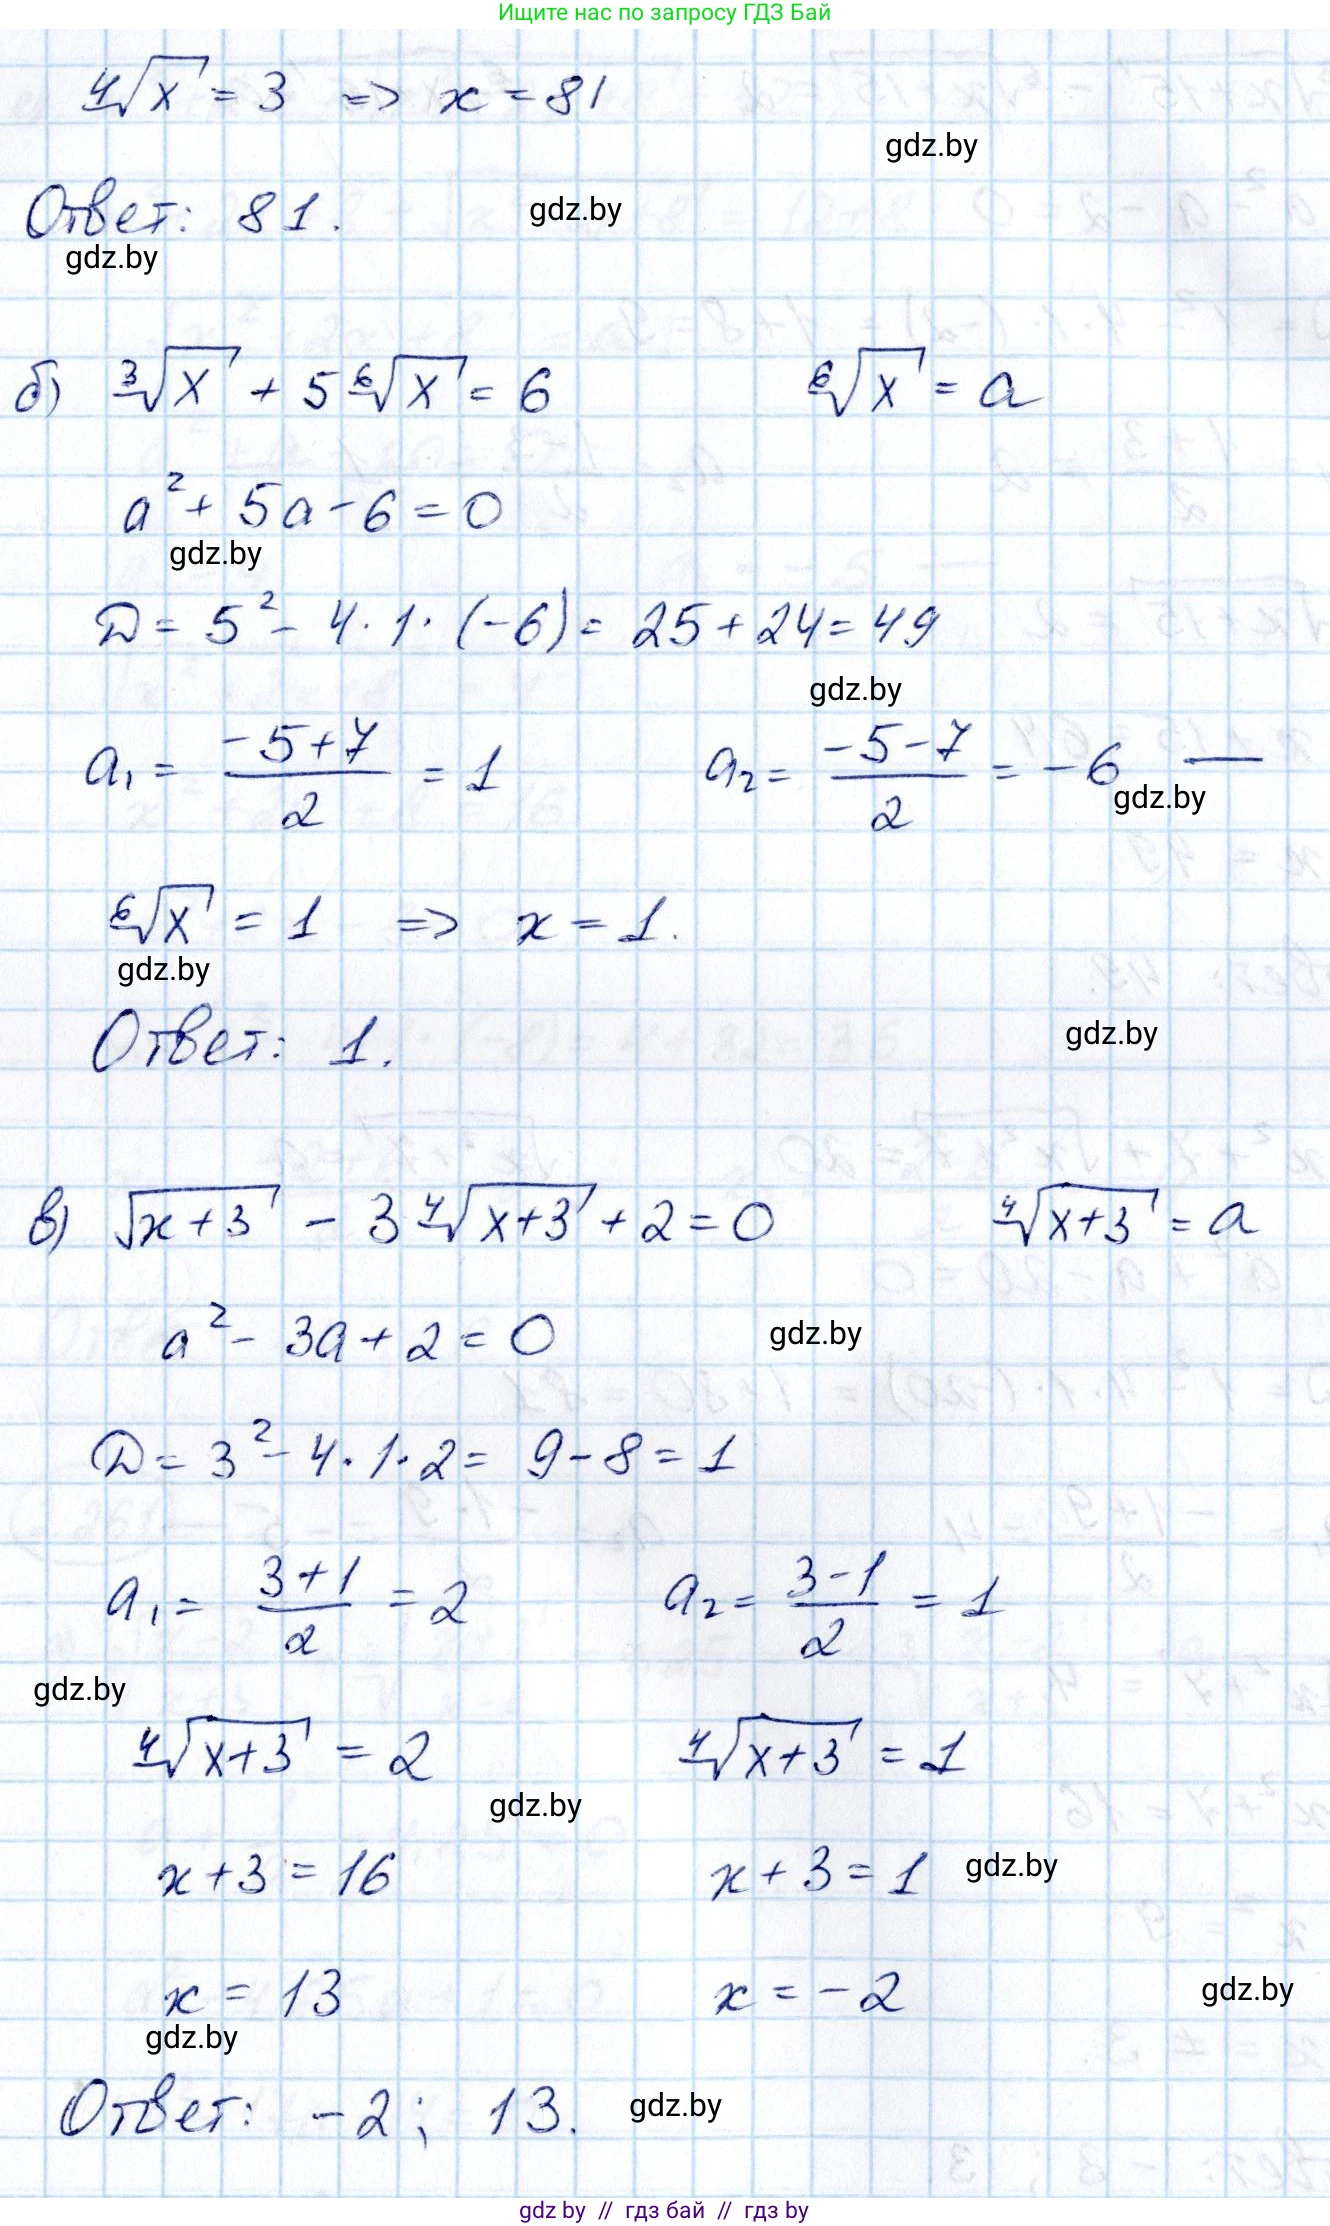 Ищите нас по запросу ГДЗ Бай
⁴√x = 3 => x = 81
gdz.by
Ответ: 81.
gdz.by
gdz.by
б) ³√x + 5 ⁶√x = 6 ⁶√x = a
a² + 5a - 6 = 0
gdz.by
D = 5² - 4 · 1 · (-6) = 25 + 24 = 49
gdz.by
a₁ = (-5+7)/2 = 1 a₂ = (-5-7)/2 = -6 —
gdz.by
⁶√x = 1 => x = 1.
gdz.by
Ответ: 1.
gdz.by
в) √(x+3) - 3 ⁴√(x+3) + 2 = 0 ⁴√(x+3) = a
a² - 3a + 2 = 0
gdz.by
D = 3² - 4 · 1 · 2 = 9 - 8 = 1
a₁ = (3+1)/2 = 2 a₂ = (3-1)/2 = 1
gdz.by
⁴√(x+3) = 2 ⁴√(x+3) = 1
gdz.by
x + 3 = 16 x + 3 = 1
gdz.by
x = 13 x = -2
gdz.by
gdz.by
Ответ: -2; 13.
gdz.by
gdz by // гдз бай // гдз by